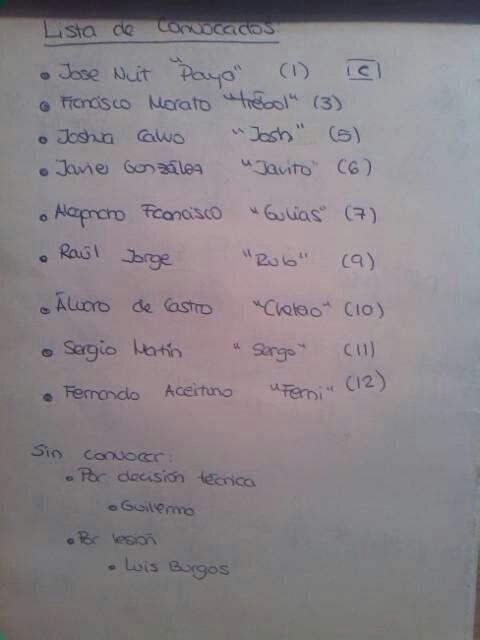 Lista de Convocados:
• Jose Nuit "Payo" (1) [C]
• Francisco Morato "trébol" (3)
• Joshua Calvo "Josh" (5)
• Javier González "Javito" (6)
• Alejandro Francisco "Gulias" (7)
• Raúl Jorge "Rubio" (9)
• Álvaro de Castro (10)
• Sergio Martín "Sergo" (11)
• Fernando Aceituno "Ferni" (12)
Sin convocar:
• Por decisión técnica
• Guillermo
• Por lesión
• Luis Burgos